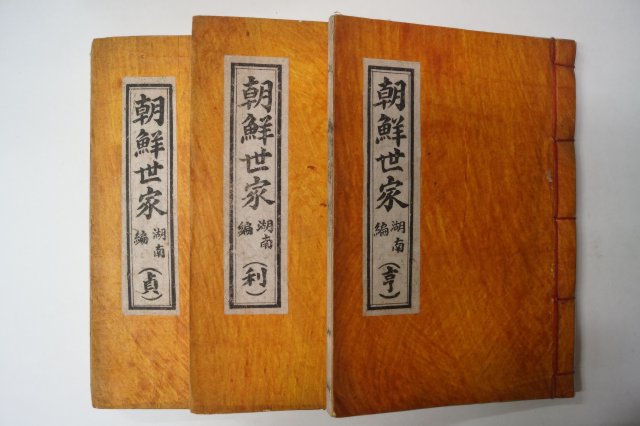 朝鮮世家
湖南
編
(貞)
朝鮮世家
湖南
編
(利)
朝鮮世家
湖南
編
(亨)